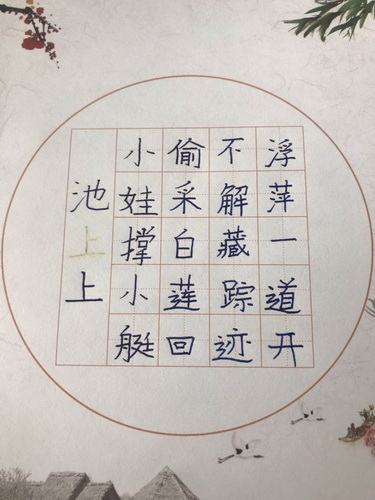 池上上
小娃撑小艇
偷采白莲回
不解藏踪迹
浮萍一道开